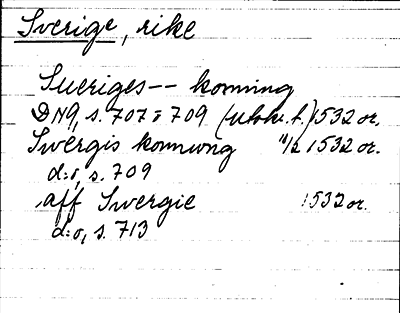 Sverige, rike
Sueriges -- konning
DN9, s. 707 o 709 (utskr. f.) 1532 or.
Swergis konnwng 11/2 1532 or.
d:o, s. 709
aff Swergie 1532 or.
d:o, s. 713